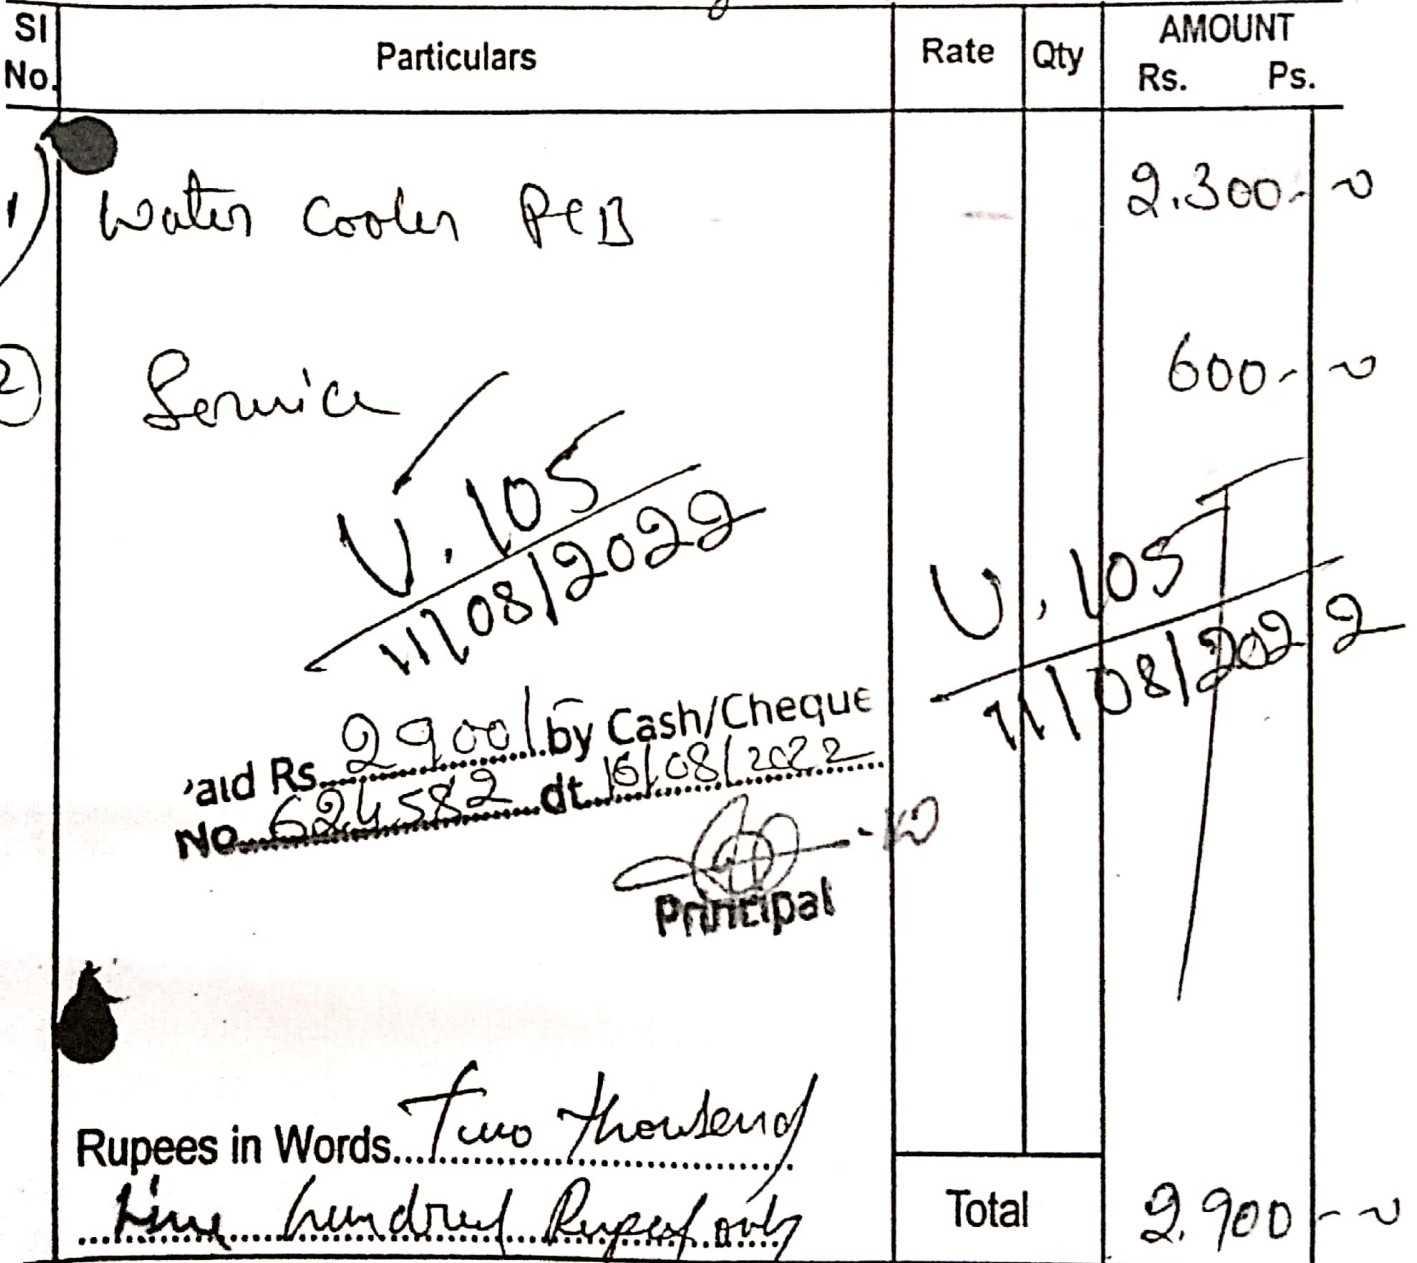 Sl No. Particulars Rate Qty AMOUNT Rs. Ps.
1) Water Cooler PCB 2.300-
2) Service 600-
V. 105
11/08/2022
V. 105
11/08/2022
aid Rs. 2900/- by Cash/Cheque
No. 624582 dt. 16/08/2022
Principal
Rupees in Words Two thousend
hundred Rupees only Total 2.900-